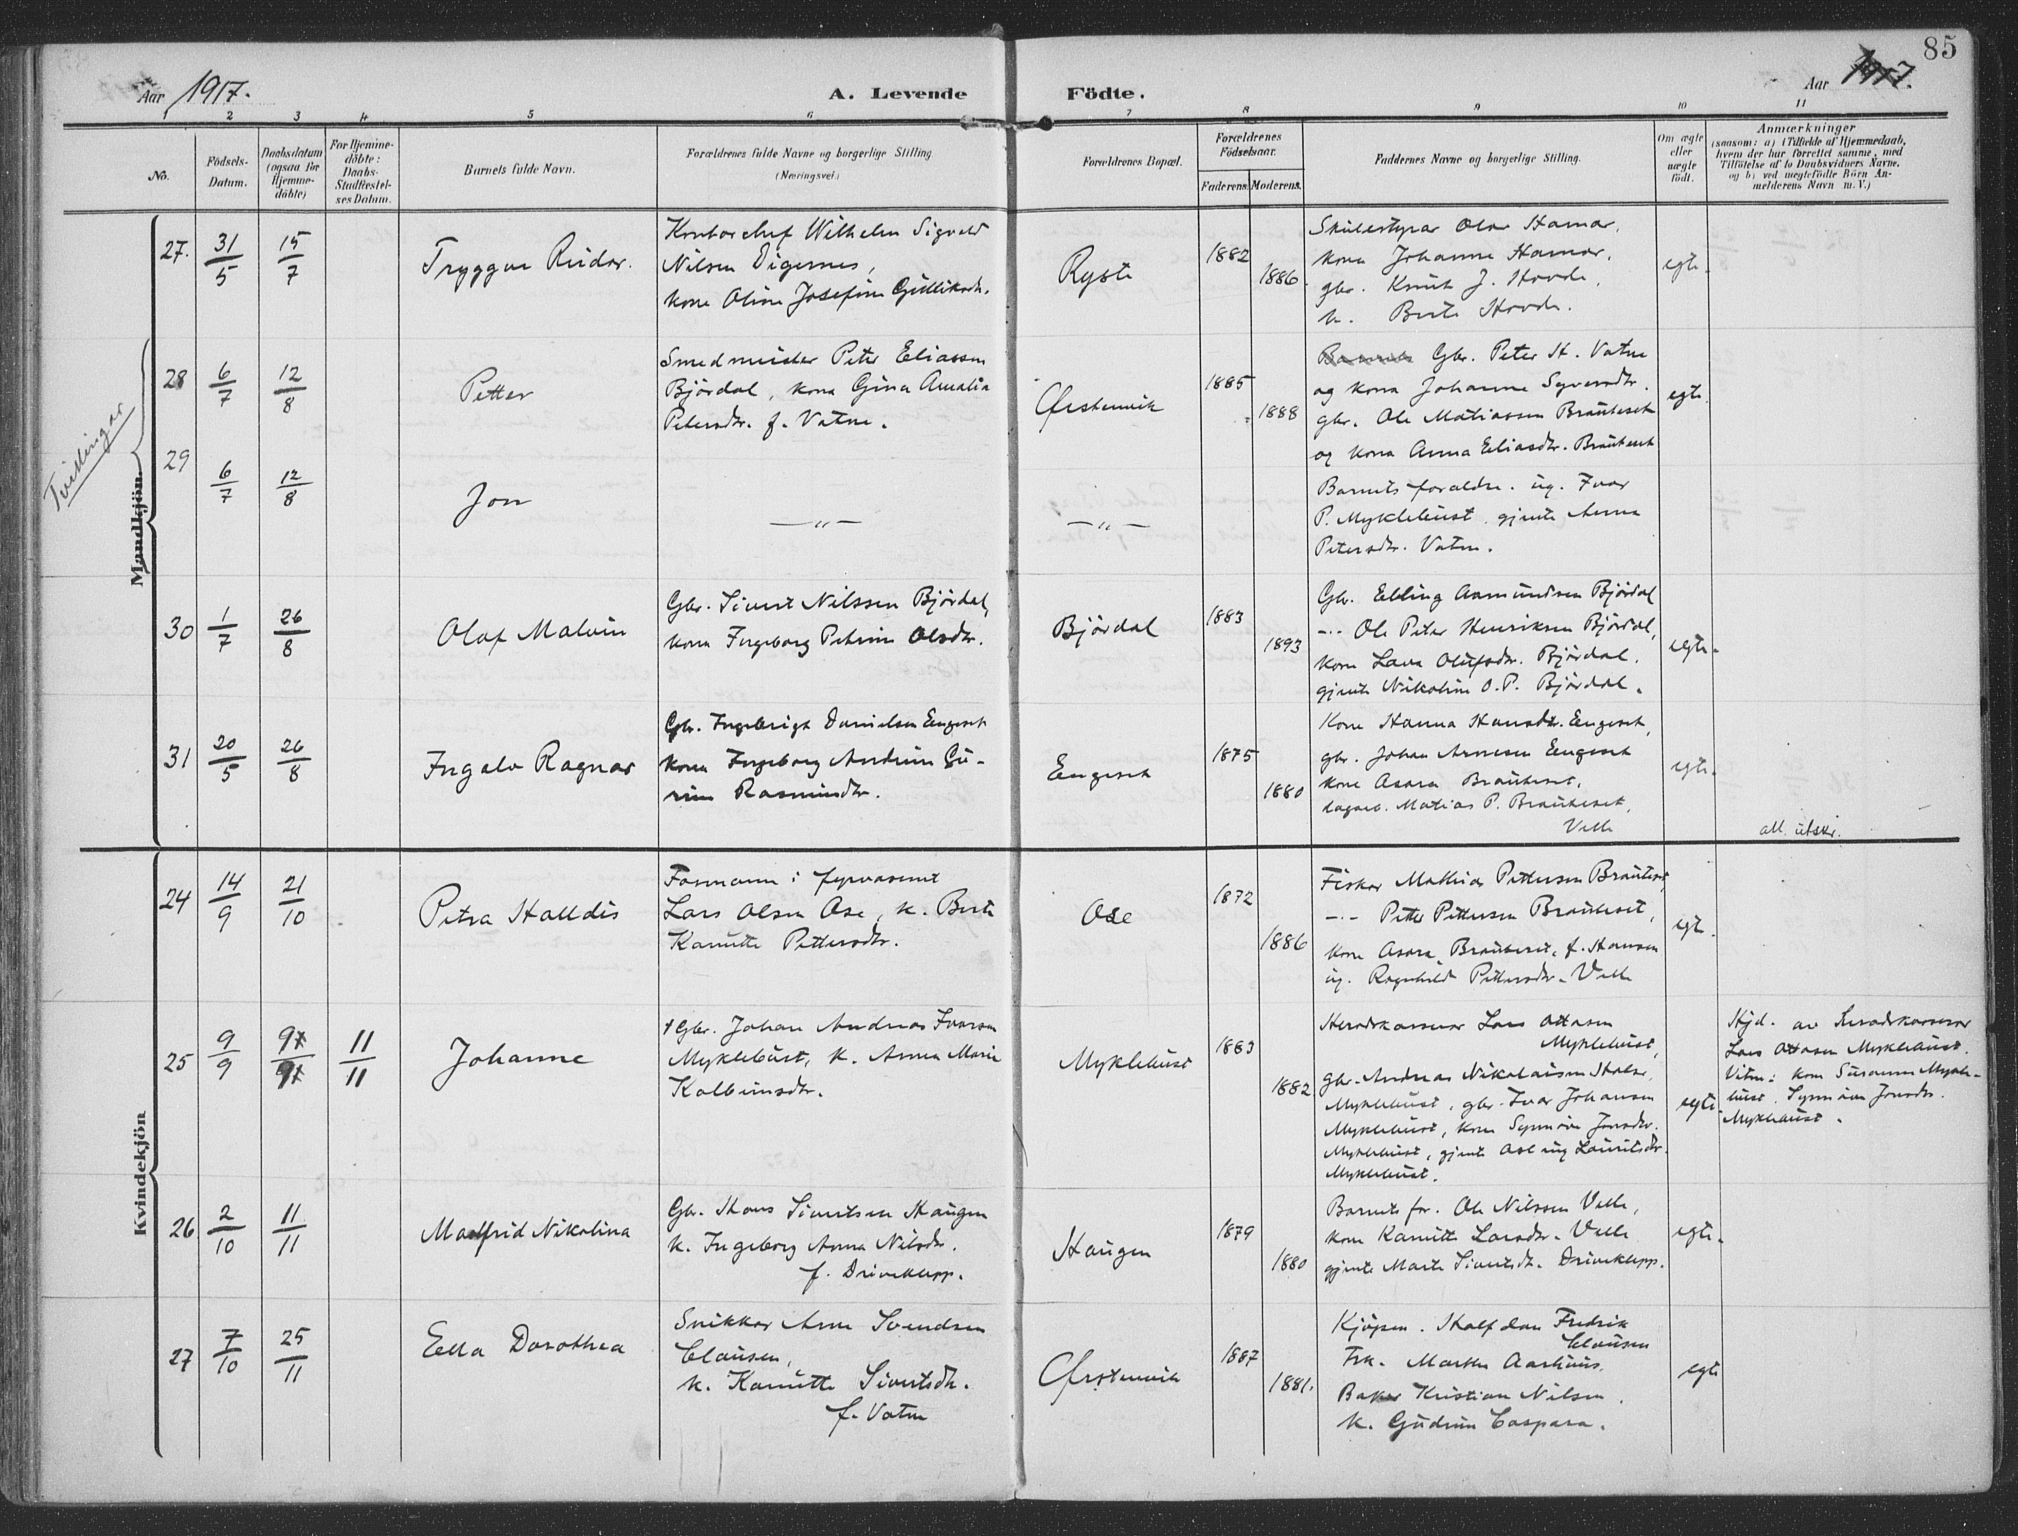 85
Aar 1917.
A. Levende Födte.
Aar 1917.
1 2 3 4 5 6 7 8 9 10 11
No.
Födsels-Datum.
Daabsdatum (ogsaa for Hjemmedöbte)
For Hjemmedöbte: Daabs-Stadfæstelses Datum.
Barnets fulde Navn.
Forældrenes fulde Navne og borgerlige Stilling
(Næringsvei.)
Forældrenes Bopæl.
Forældrenes Födselsaar.
Faderens. Moderens.
Faddernes Navne og borgerlige Stilling.
Om ægte eller uægte födt.
Anmærkninger
(saasom: a) i Tilfælde af Hjemmedaab, hvem der har forrettet samme, med Tilföielse af to Daabsvidners Navne, og b) ved uægtefödte Börn Anmelderens Navn m. V.)
Mandkjön.
Tvillingar
27. 31/5 15/7
Tryggve Reidar.
Kontorchef Wilhelm Sigvald
Nilsen Digernes,
kone Oline Josefine
Ryste
1882
1886.
Skulestyrar Olav Hamar.
kona Johanne Hamar.
gbr. Knut J. Hovde.
k. Berte Hovde.
egte.
28 6/7 12/8
Petter
Smedmeister Peter Eliassen
Björdal, kona Gina Amalia
Petersdtr. f. Vatne.
Örstenvik
1885
1888
Gbr. Peter H. Vatne
og kona Johanne Syversdtr.
gbr. Ole Matiassen Brauteset
og kona Anna Eliasdtr. Brauteset
egte.
29 6/7 12/8
Jon
—„—
—„—
Barnets foraldre. ug. Ivar
P. Myklebust. gjente Anna
Petersdtr. Vatne.
30 1/7 26/8
Olaf Malvin
Gbr. Sivert Nilssen Björdal,
kona Ingeborg Petrine Olsdtr.
Björdal
1883
1893
Gbr. Elling Aamundsen Björdal
-·- Ole Peter Henriksen Björdal,
kone Lava Olufsdtr. Björdal.
gjente Nikoline O.P. Björdal.
egte.
31 20/5 26/8
Ingalv Ragnar
Gbr. Ingebrigt Danielsen Engeset
kona Ingeborg Andrine Gu-
rine Rasmusdtr.
Engeset
1875
1880
Kone Hanna Hansdtr. Engeset,
gbr. Johan Arnesen Engeset
kone Asara Brauteset,
Matias P. Brauteset.
Velle
egte.
att. utskr.
Kvindekjön
24 14/9 21/10
Petra Halldis
Formann i fyrvæsenet
Lars Olsen Ose, k. Berte
Kanutte Pettersdtr.
Ose
1872
1886
Fisker Mathias Pettersen Brauteset,
-·- Petter Pettersen Brauteset,
kone Asara Brauteset, f. Hansen
ug. Ragnhild Pettersdtr. Velle
egt.
25 9/9 11/11
Johanne
Gbr. Johan Andreas Ivarsen
Myklebust, k. Anna Marie
Kolbeinsdtr.
Myklebust
1883
1882
Heradskasserar Lars Ottesen
Myklebust,
gbr. Andreas Nikolaisen
Myklebust, gbr. Ivar Johansen
Myklebust, kone Synnöve Jonsdtr.
Myklebust, gjente Lauritsdtr.
Myklebust.
egte.
Hjd. av heradskasserar
Lars Ottesen Myklebust.
Vitne: kone Susanne Mykle-
bust. Synnöve Jonsdtr.
Myklebust.
26 2/10 11/11
Malfrid Nikolina
Gbr. Hans Sivertsen Haugen
k. Ingeborg Anna Nilsdtr.
f. Driveklepp.
Haugen
1879
1880
Barnets far. Ole Nilssen Velle,
kone Kanutte Larsdtr. Velle
gjente Marte Sivertsdtr. Driveklepp.
egte.
27 7/10 25/11
Ella Dorothea
Snikkar Arne Svendsen
Clausen,
k. Kanutte Sivertsdtr.
f. Vatne
Örstenvik
1887
1881.
Kjöpm. Halfdan Fredrik
Clausen
Frk. Marthe Aarhuus.
Baker Kristian Nilsen.
k. Gudrun Caspara.
egte